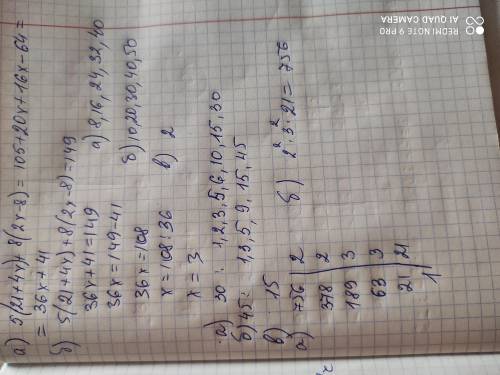 а) 5(21+4x)+8(2x-8)=105+20x+16x-64=
=36x+41
б) 5(21+4x)+8(2x-8)=149
36x+41=149
36x=149-41
36x=108
x=108:36
x=3
а) 8,16,24,32,40
б) 10,20,30,40,50
в) 2
а) 30: 1,2,3,5,6,10,15,30
б) 45: 1,3,5,9,15,45
в) 15
а) 756 2
378 2
189 3
63 3
21 21
1
б) 2² · 3² · 21 = 756
REDMI NOTE 9 PRO
AI QUAD CAMERA